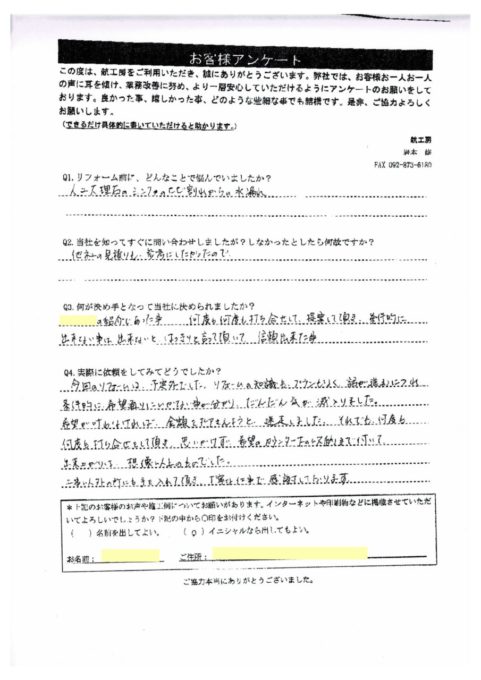 お客様アンケート
この度は、航工房をご利用いただき、誠にありがとうございます。弊社では、お客様お一人お一人
の声に耳を傾け、業務改善に努め、より一層安心していただけるようにアンケートのお願いをして
おります。良かった事、嬉しかった事、どのような些細な事でも結構です。是非、ご協力よろしく
お願いします。
(できるだけ具体的に書いていただけると助かります。)
航工房
FAX 092-873-6180
Q1. リフォーム前に、どんなことで悩んでいましたか?
人工大理石のシンクのひび割れからの水漏れ
Q2. 当社を知ってすぐに問い合わせしましたが?しなかったとしたら何故ですか?
他社の見積りも、参考にしたかったので
Q3. 何が決め手となって当社に決められましたか?
の紹介であった事 何度も何度も打ち合せして、提案して頂き、条件的に
出来ない事は出来ないと はっきりと言って頂いて 信頼出来た事
Q4. 実際に依頼をしてみてどうでしたか?
今回のリフォームは、予定外でした。リフォームの知識も、 話が進むにつれ
条件的に、希望通りにいかない事が分かり、だんだん気が滅入りました。
希望が叶わなければ、 と 迷走しました。それでも、何度も
何度も打ち合せをして頂き、思いがけず、希望のカウンター 収納まで付いて
出来上がりは、想像以上のものでした。
工事以外の所にも手を入れて頂き、丁寧な仕事で感謝しております
*下記のお客様のお声や施工例についてお願いがあります。インターネットや印刷物などに掲載させていただ
いてよろしいでしょうか?下記の中から○印をお付けください。
( ) 名前を出してよい。 ( ○ ) イニシャルなら出してもよい。
お名前: ご住所:
ご協力本当にありがとうございました。